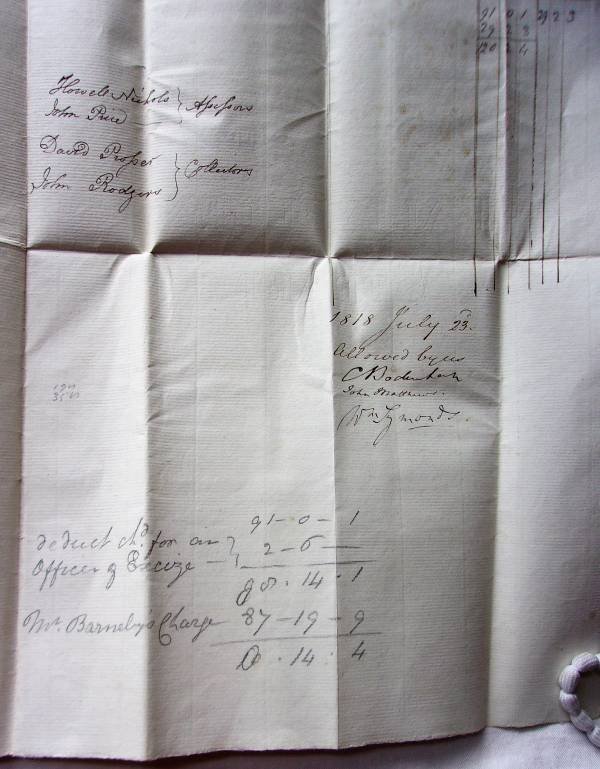 91 0 1 29 2 3
29 2 3
120 2 4
Howell Nichols } Assessors
John Price
David Prosser } Collectors
John Rodgers
1818 July 23.
Allowed by us
C Bodenham
John Matthews.
Wm Symonds.
91 - 0 - 1
deduct chd. for an } 2 - 6 -
Officer of Excize - 88 . 14 . 1
Mr. Barneby's Charge 87 - 19 - 9
0 . 14 . 4